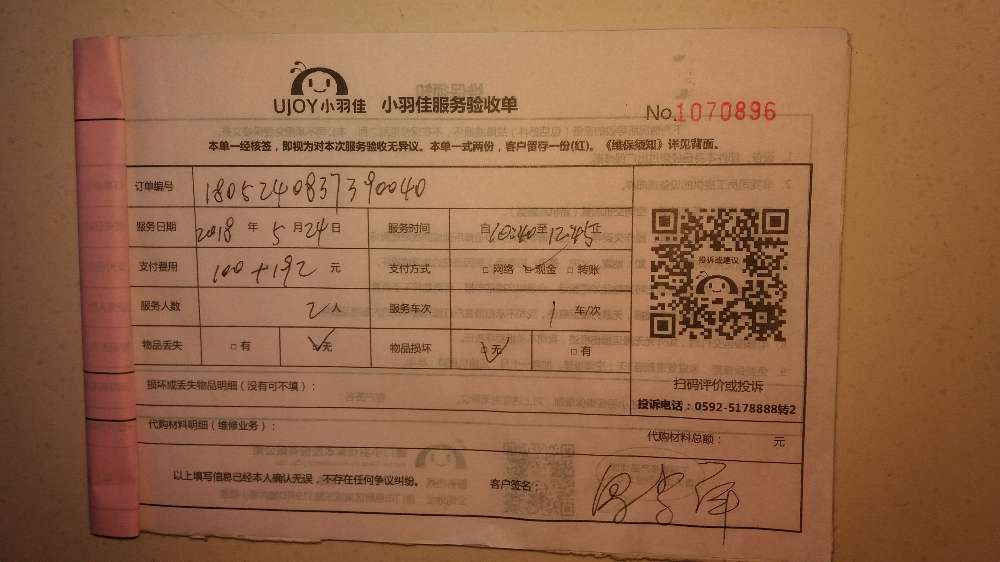 UJOY小羽佳 小羽佳服务验收单
No.1070896
本单一经核签，即视为对本次服务验收无异议。本单一式两份，客户留存一份(红)。《维保须知》详见背面。
订单编号 1805240837390040
服务日期 2018 年 5 月 24 日 服务时间 自 10:40 至 12:45 止
支付费用 100+192 元 支付方式 □网络 □现金 □转账
服务人数 2 人 服务车次 1 车/次
物品丢失 □有 □无 物品损坏 □无 □有
投诉或建议
扫码评价或投诉
投诉电话：0592-5178888转2
损坏或丢失物品明细（没有可不填）：
代购材料明细（维修业务）：
代购材料总额： 元
以上填写信息已经本人确认无误，不存在任何争议纠纷。 客户签名：